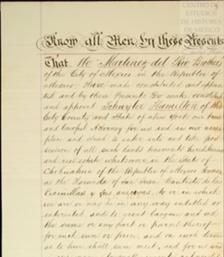 CENTRO DE
ESTUDIOS
DE HISTORIA
DE MEXICO
Know all Men by these Presents
That We Martinez del Rio Brothers
of the City of Mexico in the Republic of
Mexico Have made constituted and appoin
ted and by these Presents Do make constitute
and appoint Schuyler Hamilton of the
City County and State of New York our true
and Lawful Attorney for us and in our name
place and stead to enter into and take pos
session of all such lands tenements hereditaments
and real estate whatever in the State of
Chihuahua of the Republic of Mexico known
as the Hacienda of San Juan Bautista del
Encinillas y sus anexas, to or in which
we are or may be in any way entitled or
interested and to grant bargain and sell
the same or any part or parcel thereof
for such sum or price and on such terms
as to him shall seem meet, and for us